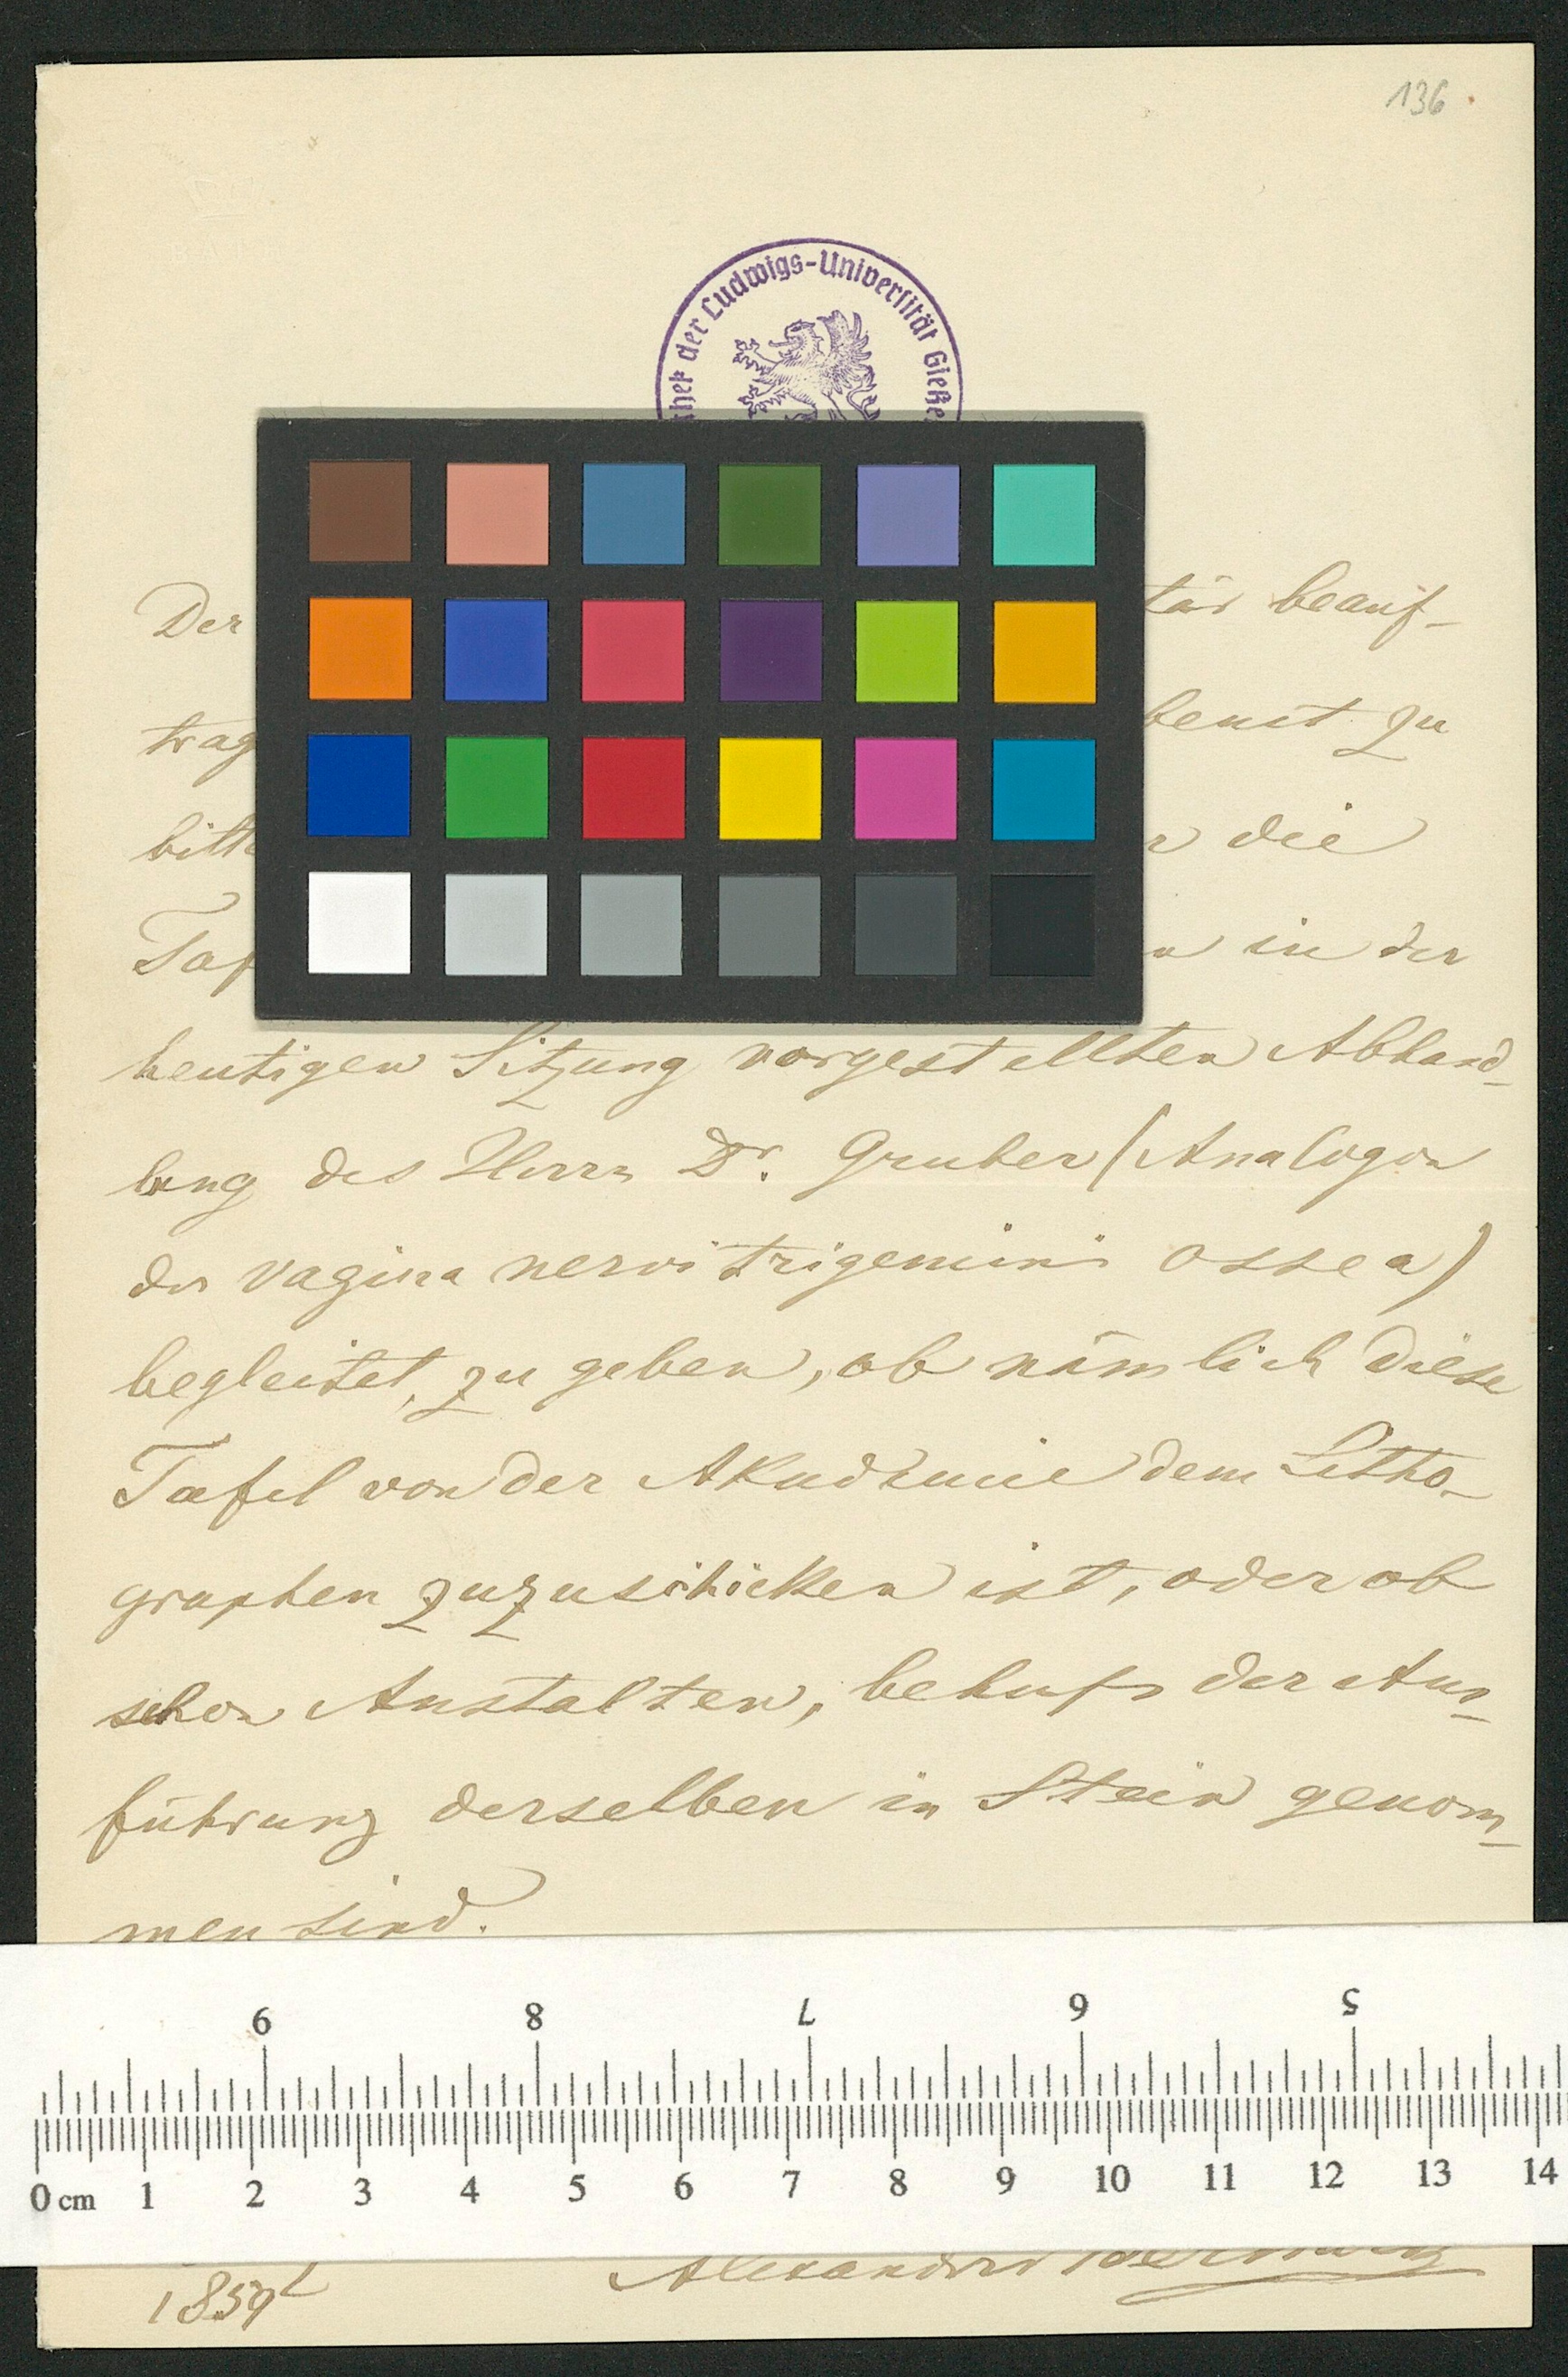 136
thek der Ludwigs-Universität Gieße
Der tär beauf-
trag benst zu
bitte die
Taf in der
heutigen Sitzung vorgestellten Abhand-
lung des Herrn Dr. Gruber (Analogon
der vagina nervi trigemini ossea)
begleitet, zu geben, ob nämlich diese
Tafel von der Akademie dem Litho-
graphen zuzuschicken ist, oder ob
schon Anstalten, behufs der Aus-
führung derselben in Stein genom-
men sind.
9 8 7 6 5
0 cm 1 2 3 4 5 6 7 8 9 10 11 12 13 14
Alexander
1859